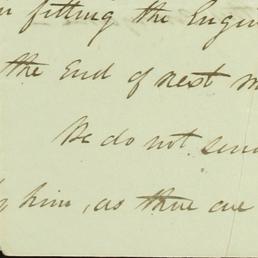 fitting the Engin
the End of next m
We do not sen
by him, as there are